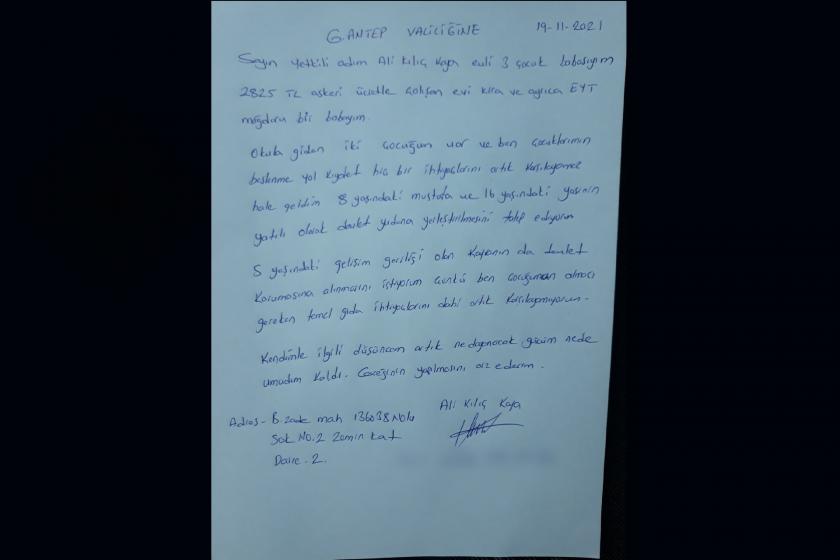 G.ANTEP VALİLİĞİNE
19-11-2021
Sayın yetkili adım Ali Kılıç Kaya evli 3 çocuk babasıyım
2825 TL askeri ücretle çalışan evi kira ve ayrıca EYT
mağduru bir babayım.
Okula giden iki çocuğum var ve ben çocuklarımın
beslenme yol kıyafet hiç bir ihtiyaçlarını artık karşılayamaz
hale geldim 8 yaşındaki mustafa ve 16 yaşındaki yasinin
yatılı olarak devlet yurduna yerleştirilmesini talep ediyorum
5 yaşındaki gelişim geriliği olan Kaanın da devlet
korumasına alınmasını istiyorum çünkü ben çocuğuman alması
gereken temel gıda ihtiyaçlarını dahi artık karşılayamıyorum.
Kendimle ilgili düşüncem artık ne dayanacak gücüm nede
umudum kaldı. Gereğinin yapılmasını arz ederim.
Ali Kılıç Kaya
Adres - B.Zade mah 136038 Nolu
Sok No.2 Zemin kat
Daire.2.